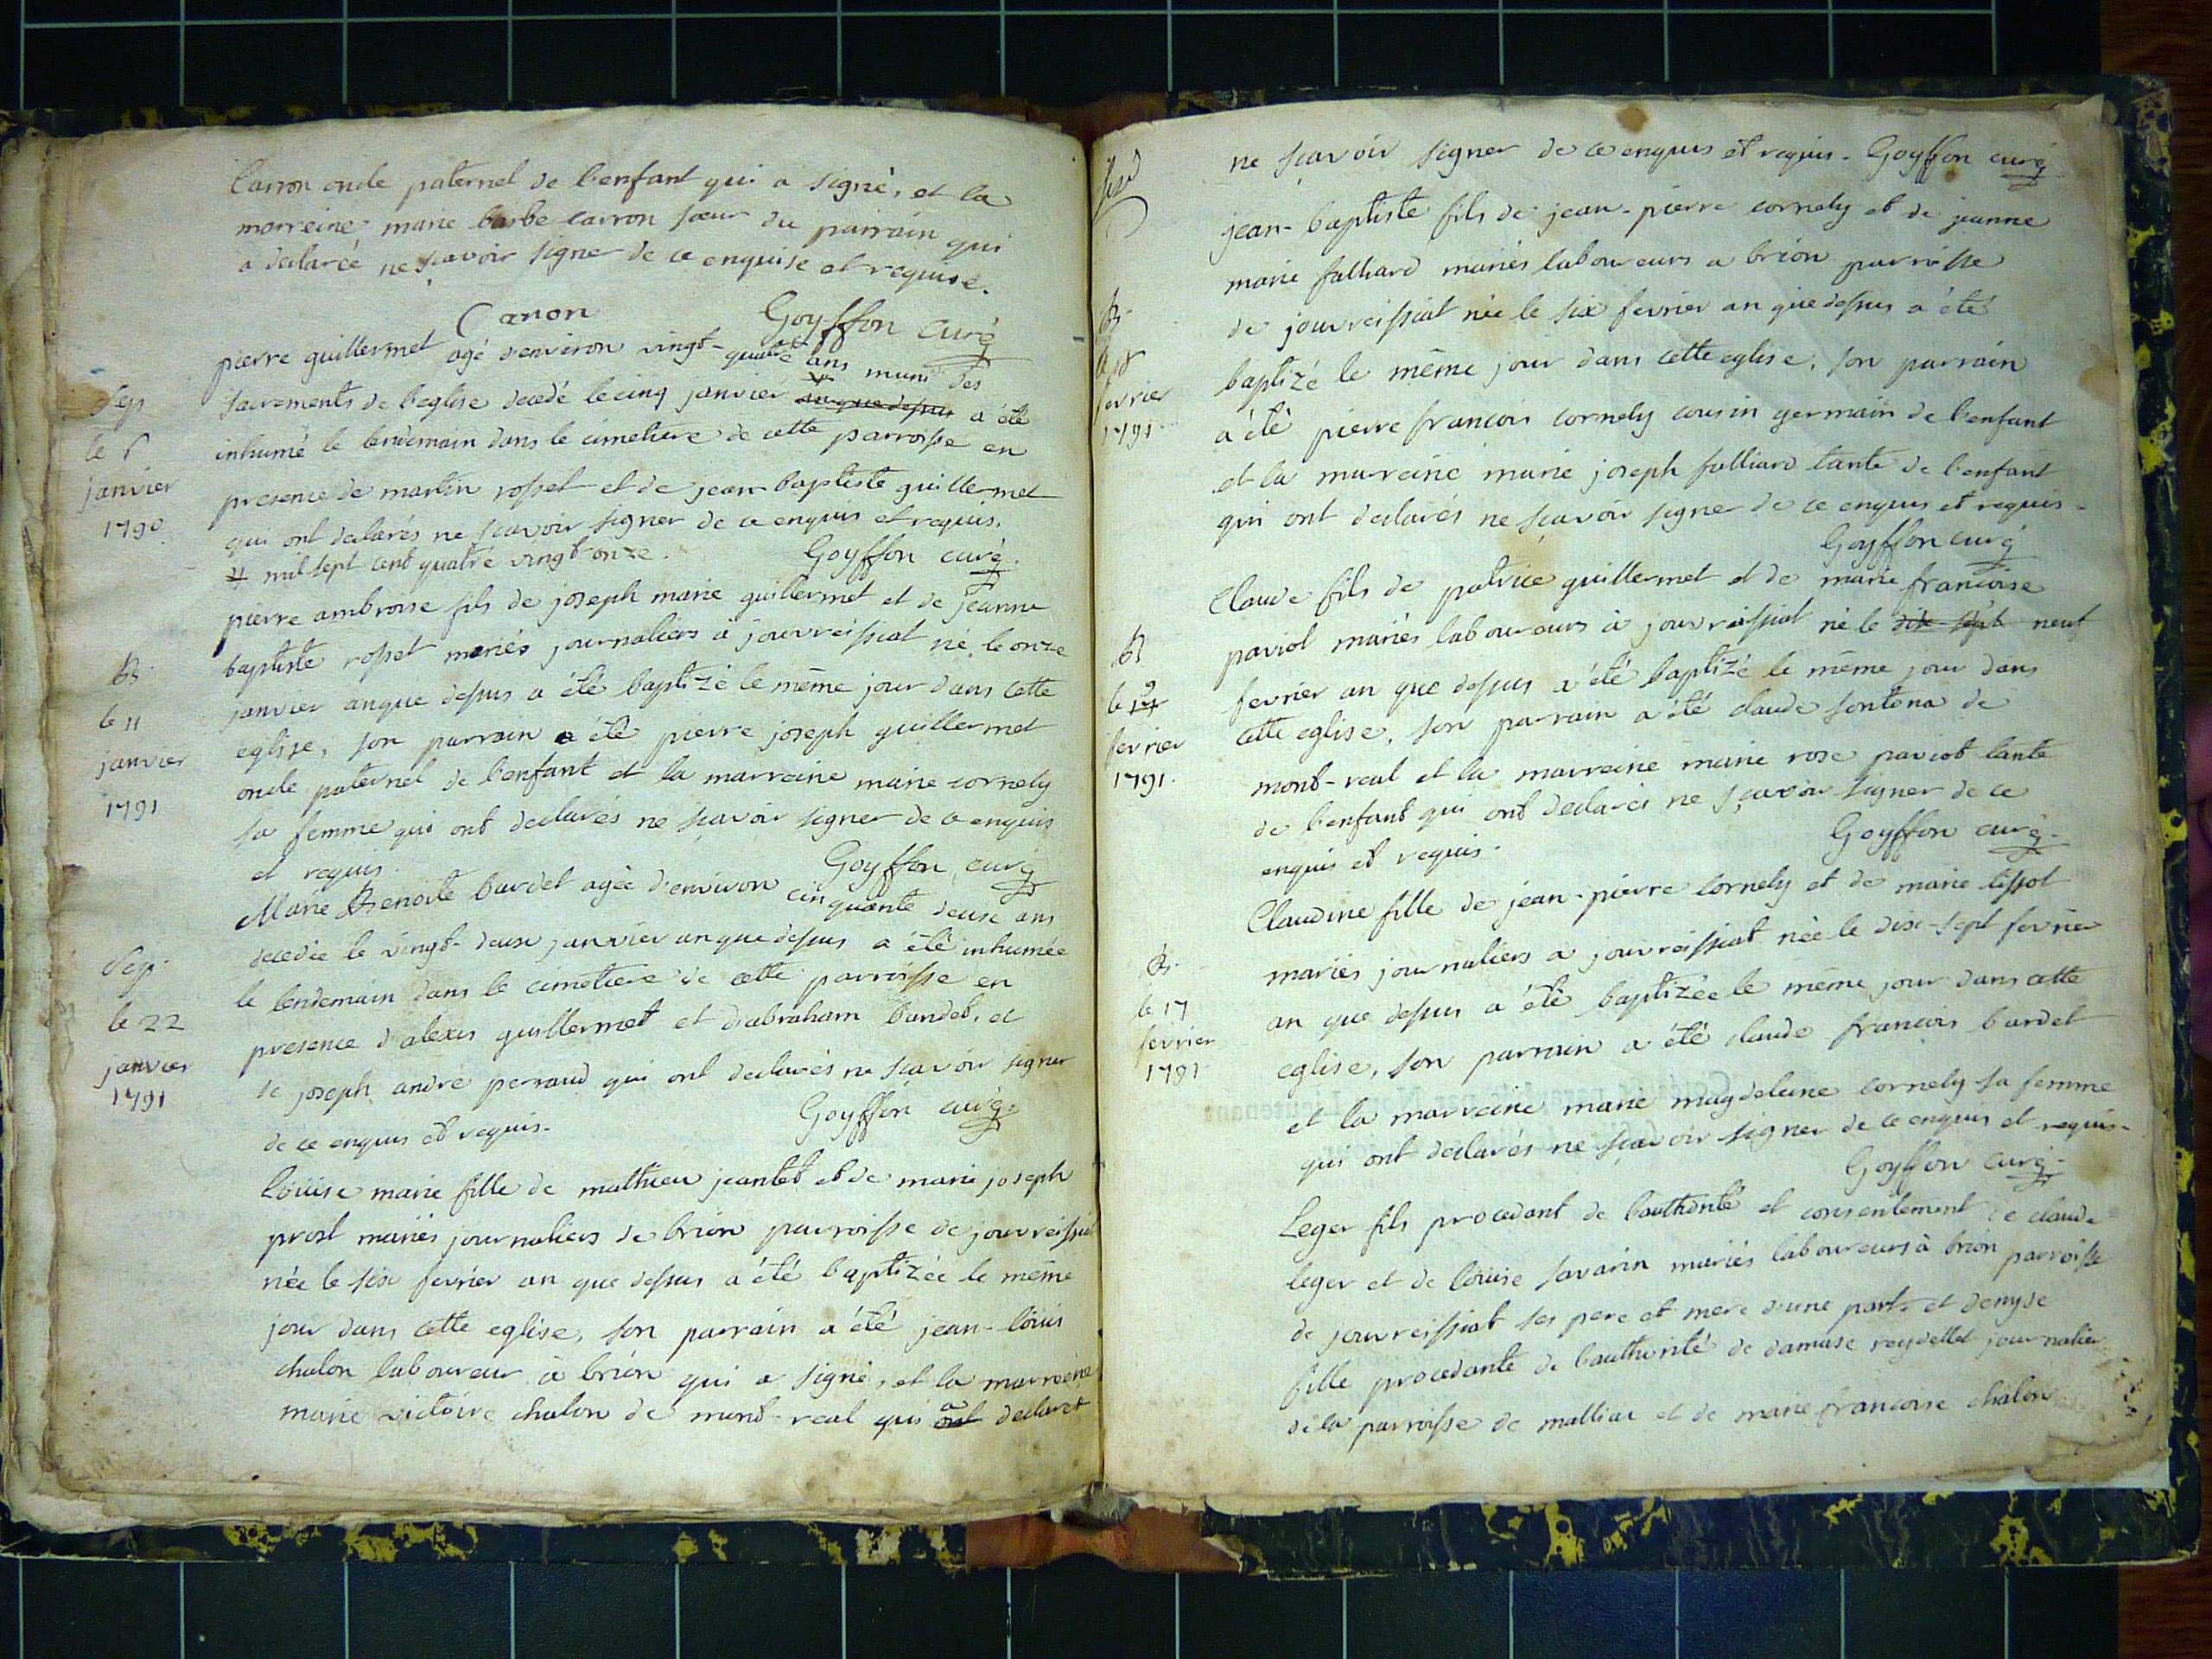 Carron oncle paternel de l'enfant qui a signé, et la
marreine marie barbe carron sœur du parrain qui
a declaréé ne sçavoir signer de ce enquise et requise.
Caron Goyffon curé
Sep
le 5
janvier
1790
pierre guillermet agé d'environ vingt-quatre ans muni des
sacrements de l'eglise decedé le cinq janvier an que dessus a été
inhumé le lendemain dans le cimetiere de cette parroisse en
presence de martin rosset et de jean baptiste guillermet
qui ont declarés ne sçavoir signer de ce enquis et requis.
# mil sept cent quatre vingt onze. Goyffon curé
B.
le 11
janvier
1791
pierre ambroise fils de joseph marie guillermet et de jeanne
baptiste rosset mariés journaliers à jouvreissiat né le onze
janvier an que dessus a été baptizé le même jour dans cette
eglise, son parrain a été pierre joseph guillermet
oncle paternel de l'enfant et la marreine marie cornely
sa femme qui ont declarés ne sçavoir signer de ce enquis
et requis. Goyffon curé
Sep.
le 22
janvier
1791
Marie Benoite bardet agée d'environ cinquante deux ans
decedée le vingt-deux janvier an que dessus a été inhumée
le lendemain dans le cimetiere de cette parroisse en
presence d'alexis guillermet et d'abraham bardet, et
de joseph andré perraud qui ont declarés ne sçavoir signer
de ce enquis et requis. Goyffon curé.
Loüise marie fille de mathieu jeantet et de marie joseph
prost mariés journaliers de brion parroisse de jouvreissiat
née le six fevrier an que dessus a été baptizée le même
jour dans cette eglise, son parrain a été jean-loüis
chalon laboureur à brion qui a signé, et la marreine
marie victoire chalon de mont-real qui ont a declaret
ne sçavoir signer de ce enquis et requis. Goyffon curé
B.
fevrier
1791
jean-baptiste fils de jean-pierre cornely et de jeanne
marie falliard mariés laboureurs a brion parroisse
de jouvreissiat née le six fevrier an que dessus a été
baptizé le même jour dans cette eglise, son parrain
a été pierre francois cornely cousin germain de l'enfant
et la marreine marie joseph falliard tante de l'enfant
qui ont declarés ne sçavoir signer de ce enquis et requis.
Goyffon curé
B
le 17 9
fevrier
1791.
Claude fils de patrice guillermet et de marie francoise
paviot mariés laboureurs à jouvreissiat né le dix-sept neuf
fevrier an que dessus a été baptizé le même jour dans
cette eglise, son parrain a été claude fontena de
mont-real et la marreine marie rose paviot tante
de l'enfant qui ont declarés ne sçavoir signer de ce
enquis et requis. Goyffon curé.
B.
le 17
fevrier
1791
Claudine fille de jean-pierre cornely et de marie tissot
mariés journaliers a jouvreissiat née le dix-sept fevrier
an que dessus a été baptizée le même jour dans cette
eglise, son parrain a été claude francois bardet
et la marreine marie magdeleine cornely sa femme
qui ont declarés ne sçavoir signer de ce enquis et requis.
Goyffon curé.
Leger fils procedant de l'authorité et consentement de claude
leger et de loüise savarin mariés laboureurs à brion parroisse
de jouvreissiat ses pere et mere d'une part, et denyse
fille procedante de l'authorité de damase reydellet journalier
de la parroisse de malliat et de marie francoise chalon